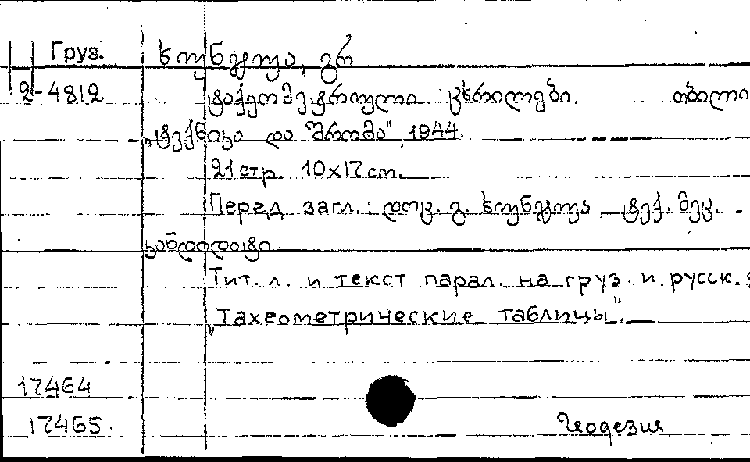 Груз. ხუნჯუა, გრ
2-4812 ტაქეომეტრიული ცხრილები. თბილი
„ტექნიკა და შრომა" 1944.
21 стр. 10x17 cm.
Перед загл.: დოც. გ. ხუნჯუა – ტექ. მეც.
კანდიდატი
Тит. л. и текст парал. на груз. и русск.
„Тахеометрические таблицы".
17464
17465. Геодезия